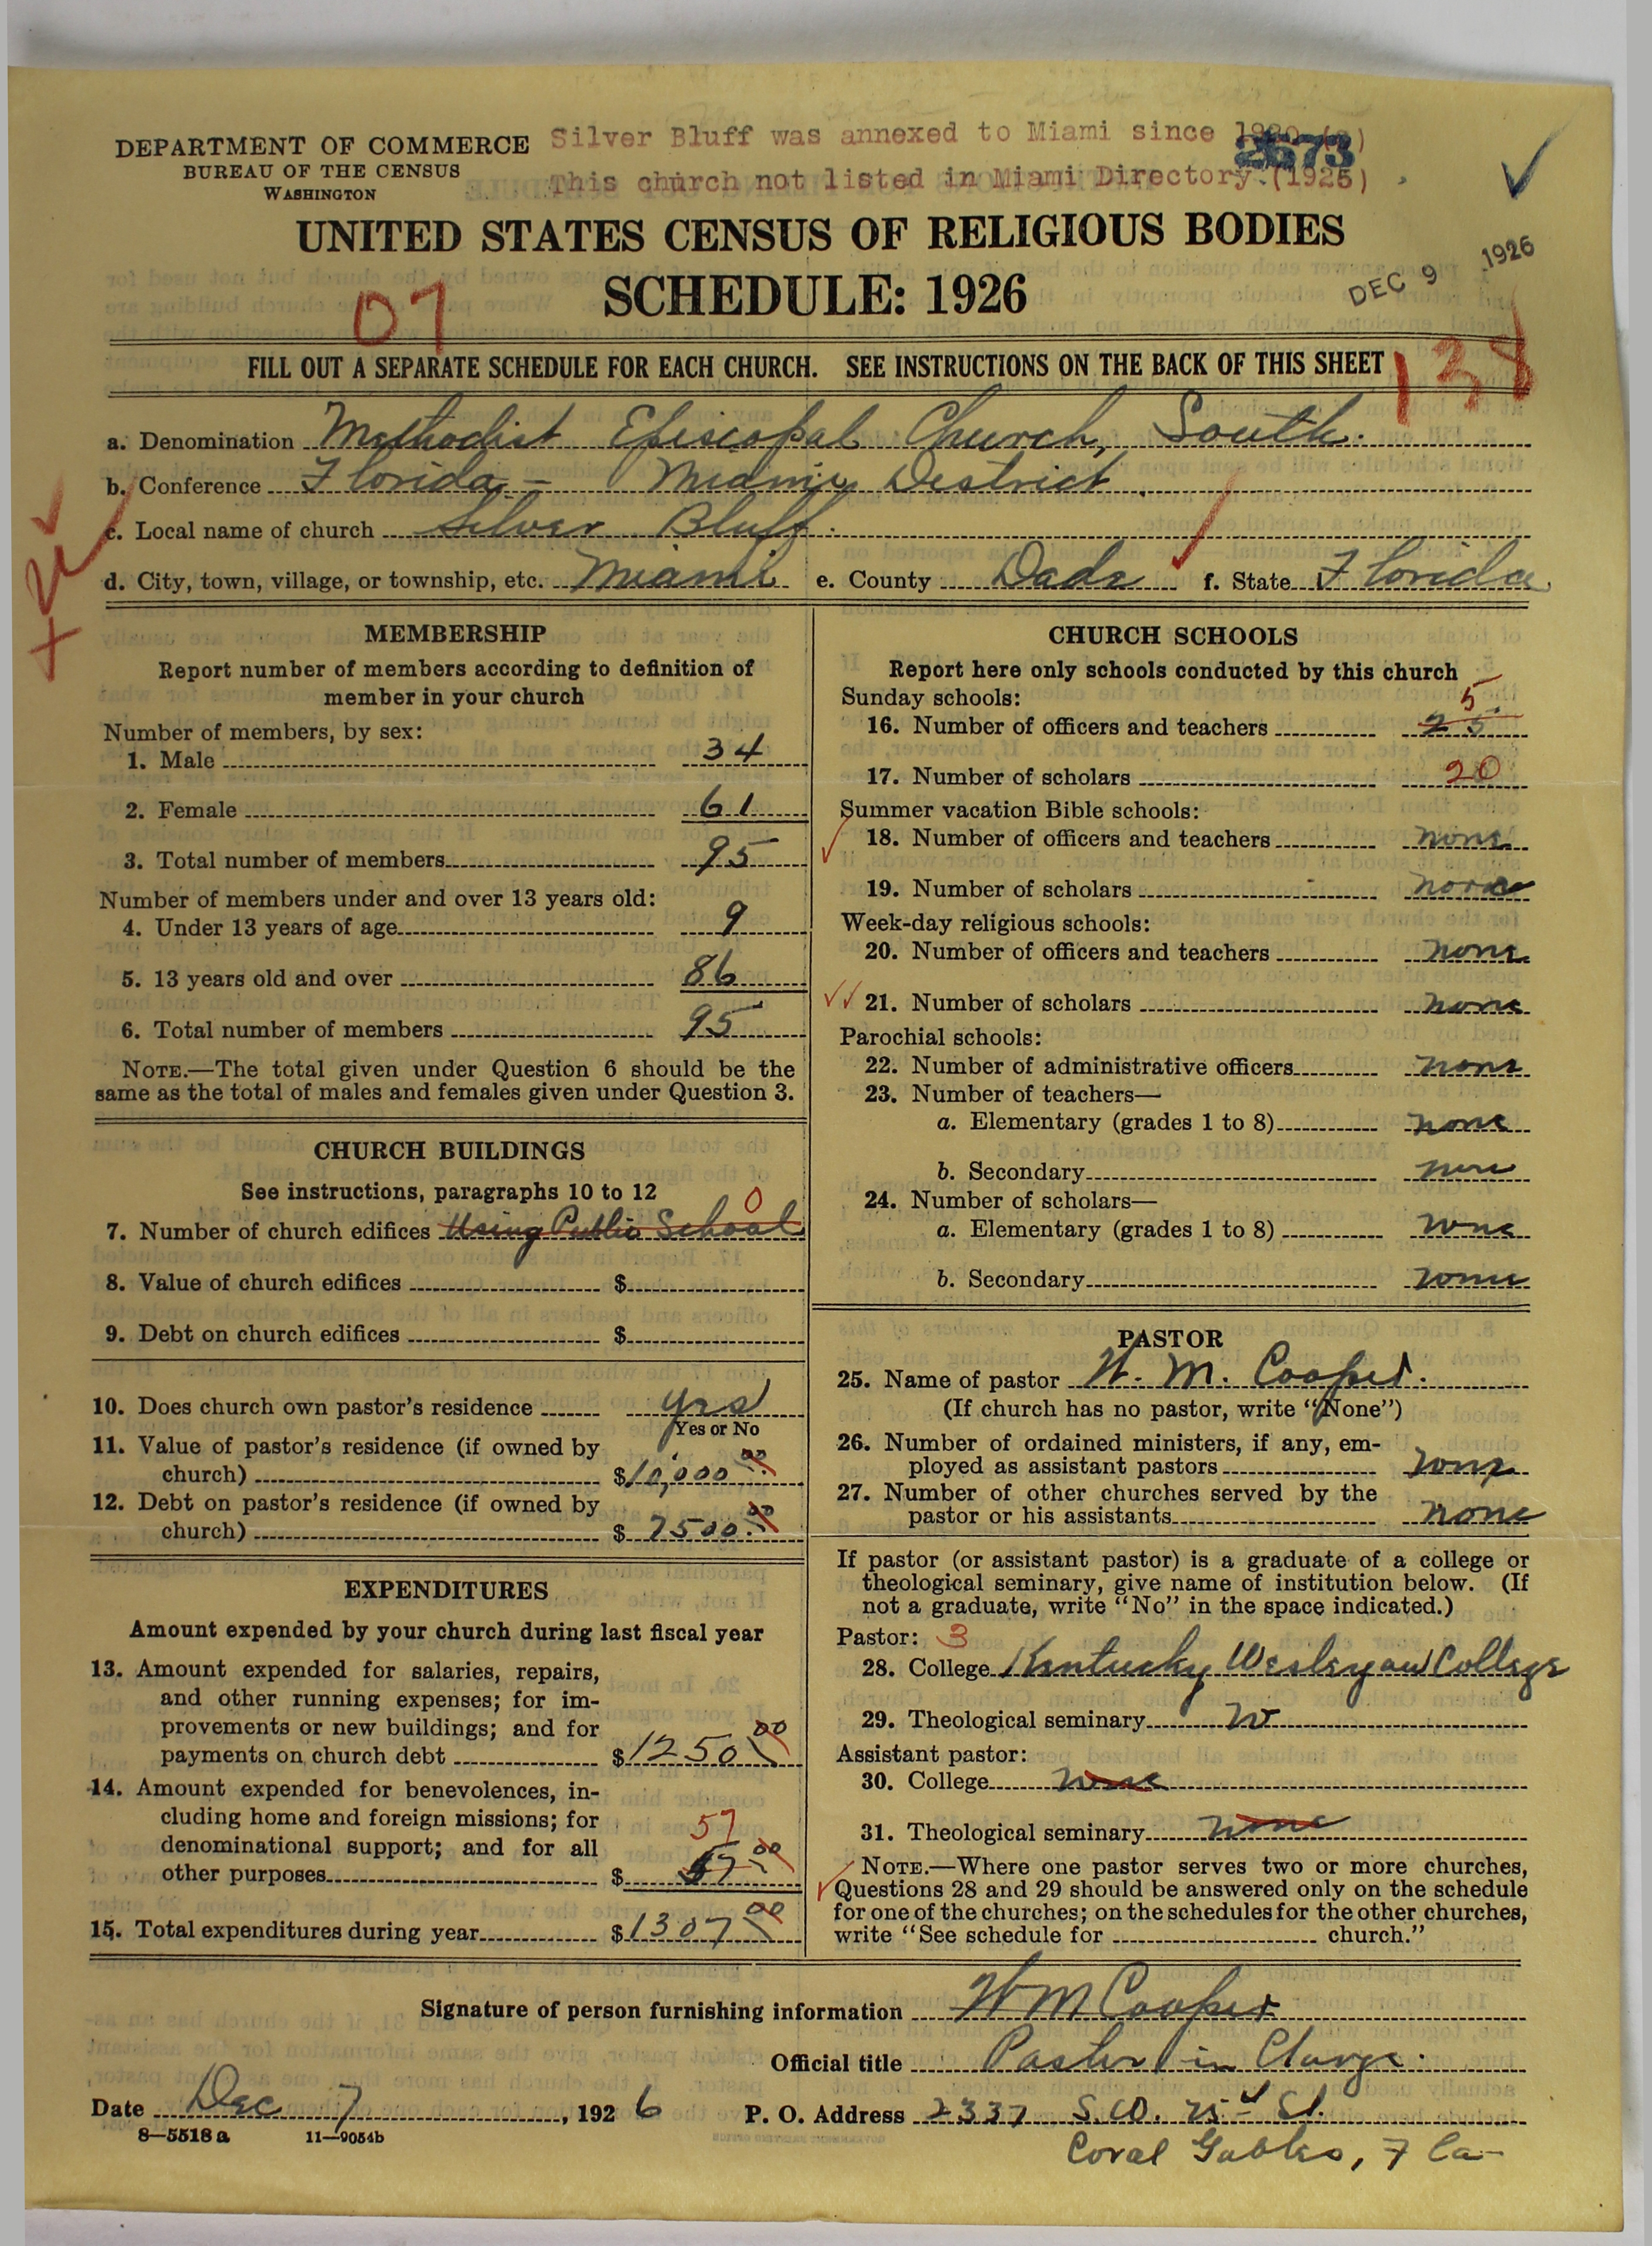 DEPARTMENT OF COMMERCE
BUREAU OF THE CENSUS
WASHINGTON
Silver Bluff was annexed to Miami since
2673
This church not listed in Miami Directory.(1925)
UNITED STATES CENSUS OF RELIGIOUS BODIES
SCHEDULE: 1926
DEC 9 1926
07
FILL OUT A SEPARATE SCHEDULE FOR EACH CHURCH. SEE INSTRUCTIONS ON THE BACK OF THIS SHEET
138
a. Denomination Methodist Episcopal Church, South.
b. Conference Florida - Miami District
c. Local name of church Silver Bluff.
d. City, town, village, or township, etc. Miami e. County Dade f. State Florida
MEMBERSHIP
Report number of members according to definition of
member in your church
Number of members, by sex:
1. Male 34
2. Female 61
3. Total number of members 95
Number of members under and over 13 years old:
4. Under 13 years of age 9
5. 13 years old and over 86
6. Total number of members 95
NOTE.—The total given under Question 6 should be the
same as the total of males and females given under Question 3.
CHURCH BUILDINGS
See instructions, paragraphs 10 to 12
0
7. Number of church edifices Using Public School
8. Value of church edifices $
9. Debt on church edifices $
10. Does church own pastor's residence Yes
Yes or No
11. Value of pastor's residence (if owned by
church) $10,000 00
12. Debt on pastor's residence (if owned by
church) $ 7500.00
EXPENDITURES
Amount expended by your church during last fiscal year
13. Amount expended for salaries, repairs,
and other running expenses; for im-
provements or new buildings; and for
payments on church debt $1250 00
14. Amount expended for benevolences, in-
cluding home and foreign missions; for
57
denominational support; and for all
other purposes $ 57 00
15. Total expenditures during year $1307 00
CHURCH SCHOOLS
Report here only schools conducted by this church
Sunday schools:
5
16. Number of officers and teachers 25
17. Number of scholars 20
Summer vacation Bible schools:
18. Number of officers and teachers none
19. Number of scholars none
Week-day religious schools:
20. Number of officers and teachers none
21. Number of scholars none
Parochial schools:
22. Number of administrative officers none
23. Number of teachers—
a. Elementary (grades 1 to 8) none
b. Secondary none
24. Number of scholars—
a. Elementary (grades 1 to 8) none
b. Secondary none
PASTOR
25. Name of pastor W. M. Cooper.
(If church has no pastor, write "None")
26. Number of ordained ministers, if any, em-
ployed as assistant pastors none
27. Number of other churches served by the
pastor or his assistants none
If pastor (or assistant pastor) is a graduate of a college or
theological seminary, give name of institution below. (If
not a graduate, write "No" in the space indicated.)
Pastor: 3
28. College Kentucky Wesleyan College
29. Theological seminary
Assistant pastor:
30. College none
31. Theological seminary none
NOTE.—Where one pastor serves two or more churches,
Questions 28 and 29 should be answered only on the schedule
for one of the churches; on the schedules for the other churches,
write "See schedule for church."
Signature of person furnishing information W M Cooper
Official title Pastor in Charge.
Date Dec 7, 1926 P. O. Address 2337 S.W. 25 St.
8—5518 a 11—9054b
Coral Gables, Fla-